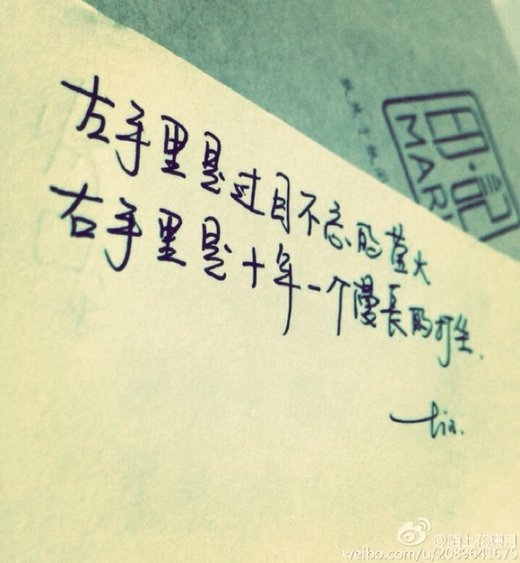 左手里是过目不忘的萤火
右手里是十年一个漫長的打坐.
印·記
MAR
@陌上花隱用
weibo.com/u/2089641675